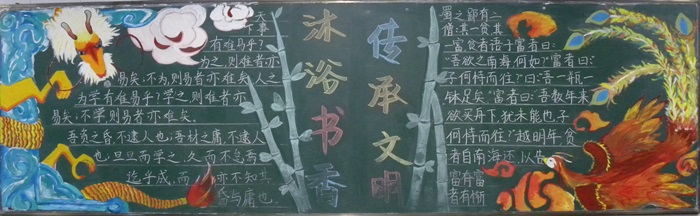 天
下事
有难易乎?
为之,则难者亦
易矣;不为,则易者亦难矣。人之
为学有难易乎?学之,则难者亦
易矣;不学则易者亦难矣。
吾资之昏,不逮人也;吾材之庸,不逮人
也;旦旦而学之,久而不怠焉
迄乎成,而亦不知其
昏与庸也。
沐浴书香
传承文明
蜀之鄙有二
僧:其一贫,其
一富。贫者语于富者曰:
“吾欲之南海,何如?”富者曰:“
子何恃而往?”曰:“吾一瓶一
钵足矣。”富者曰:“吾数年来
欲买舟下,犹未能也。子
何恃而往?”越明年,贫
者自南海还,以告
富者,富
者有惭